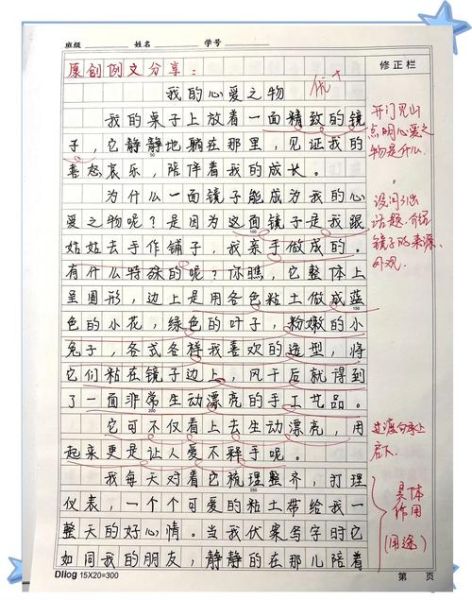 班级 姓名 学号
修正栏
原创例文分享：
优+
我的心爱之物
我的桌子上放着一面精致的镜
子，它静静地躺在那里，见证我的
喜怒哀乐，陪伴着我的成长。
为什么一面镜子能成为我的心
爱之物呢？是因为这面镜子是我跟
姑姑去手作铺子，我亲手做成的。
有什么特殊的呢？你瞧，它整体上
呈圆形，边上是用各色粘土做成蓝
色的小花，绿色的叶子，粉嫩的小
兔子，各式各样我喜欢的造型，将
它们粘在镜子边上，风干后就得到
了一面非常生动漂亮的手工艺品。
它可不仅看上去生动漂亮，用
起来更是让人爱不释手呢。
我每天对着它梳理整齐，打理
仪表，一个个可爱的粘土带给我一
整天的好心情。当我伏案写字时它
如同我的朋友，静静的在那儿陪着
开门见山
点明心爱之
物是什么.
设问引出
话题，介绍
镜子的来源、
外观.
过渡句承上
启下.
具体
作用
(用途)
Dilog 15X20=300
第 页